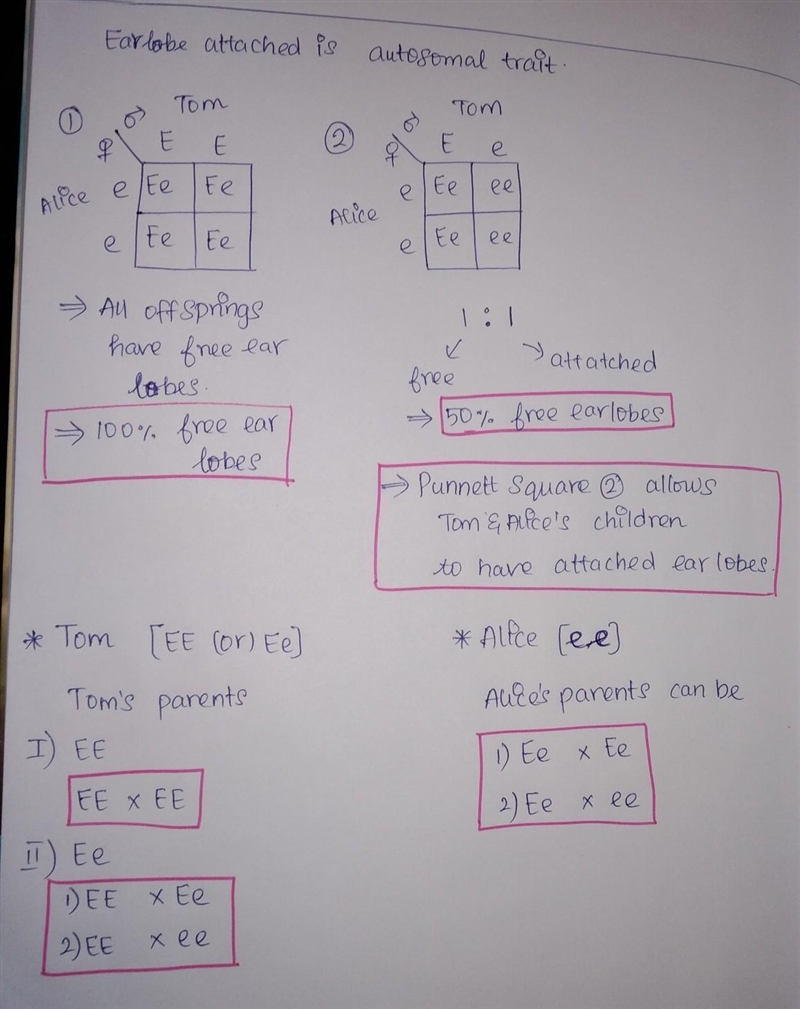 Earlobe attached is autosomal trait.
① ♂ Tom
♀ E E
Alice e Ee Ee
e Ee Ee
⇒ All offsprings
have free ear
lobes.
⇒ 100% free ear
lobes
② ♂ Tom
♀ E e
Alice e Ee ee
e Ee ee
1 : 1
↙ ↘
free attatched
⇒ 50% free earlobes
⇒ Punnett Square ② allows
Tom & Alice's children
to have attached earlobes.
* Tom [EE (or) Ee]
Tom's parents
I) EE
EE x EE
II) Ee
1) EE x Ee
2) EE x ee
* Alice [ee]
Alice's parents can be
1) Ee x Ee
2) Ee x ee